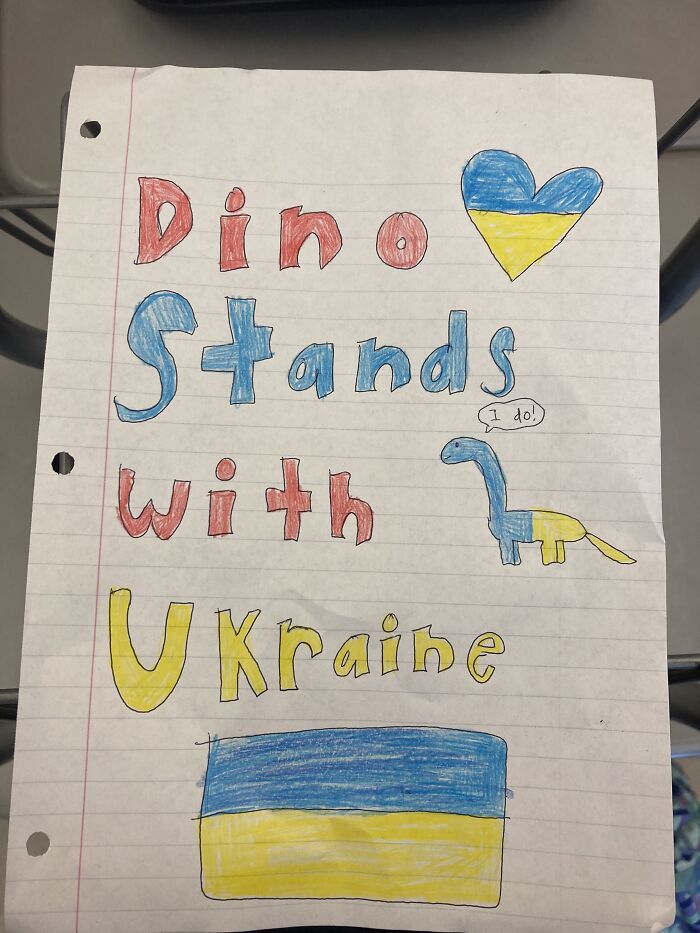 Dino
Stands
I do!
with
Ukraine